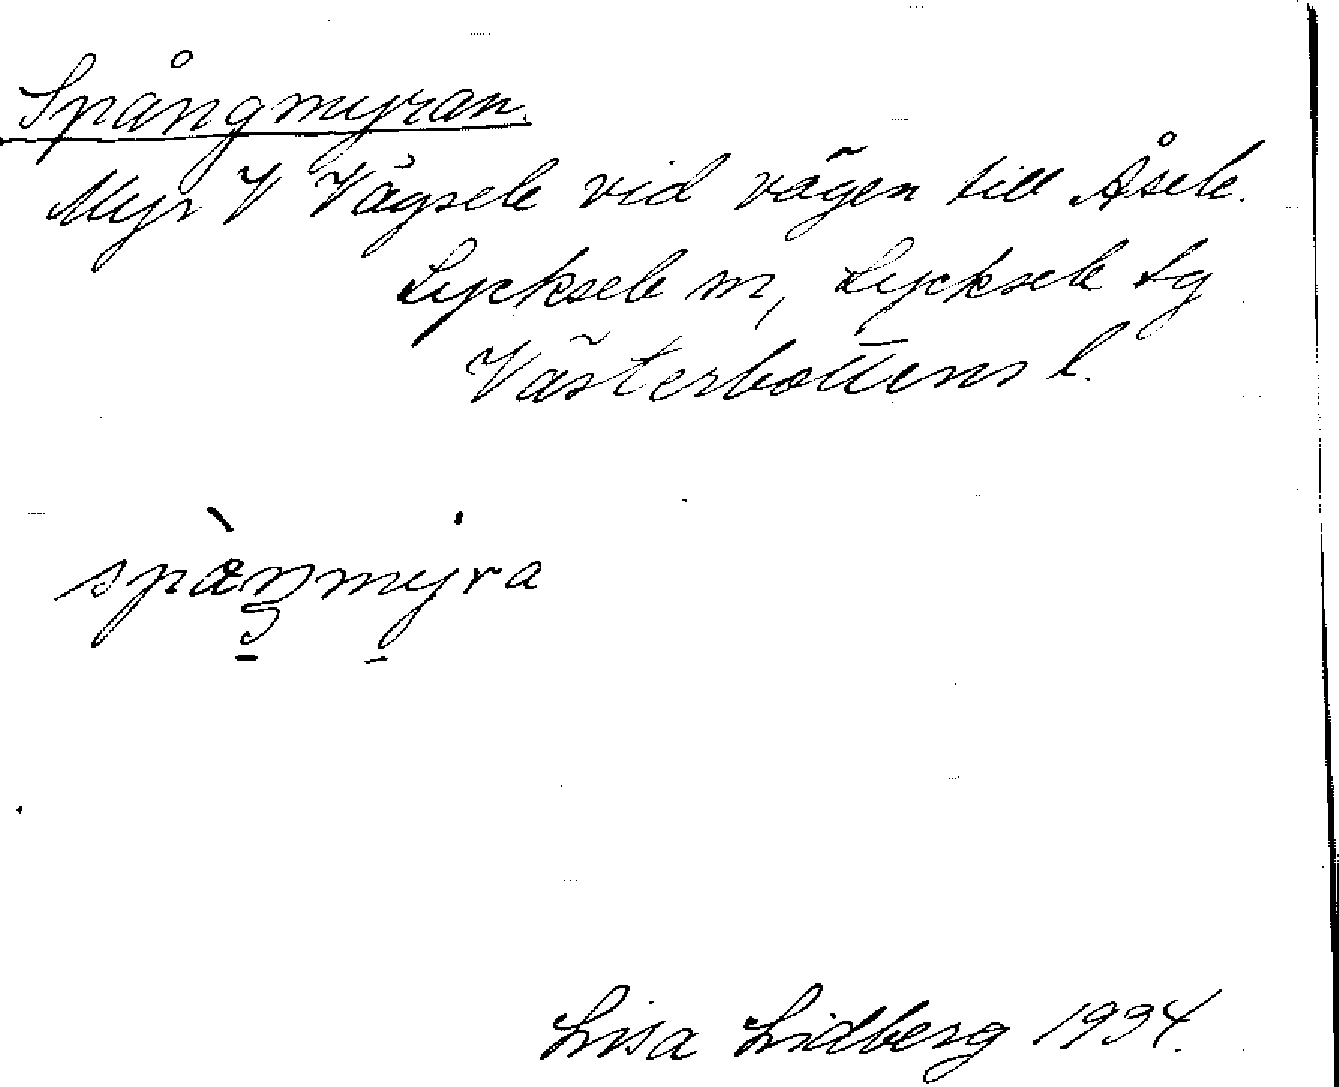 Spångmyran.
Myr V Vägsele vid vägen till Åsele.
Lycksele m, Lycksele tg
Västerbottens l.
spàŋmyra
Lisa Lidberg 1934.